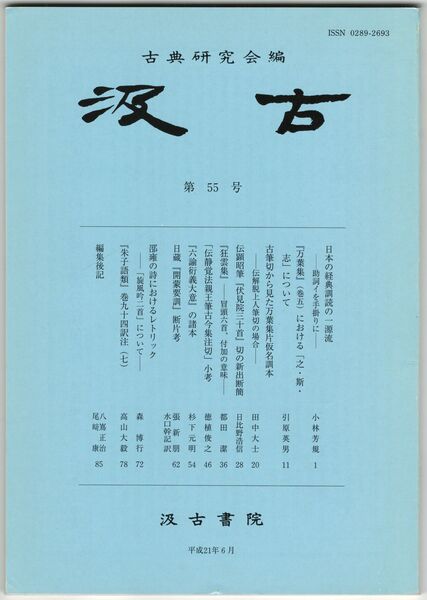 ISSN 0289-2693
古典研究会編
汲古
第 55 号
日本の経典訓読の一源流
――助詞イを手掛りに――
小林芳規 1
『万葉集』(巻五)における「之・斯・
志」について
引原英男 11
古筆切から見た万葉集片仮名訓本
――伝解脱上人筆切の場合――
田中大士 20
伝顕昭筆『伏見院三十首』切の新出断簡
日比野浩信 28
『狂雲集』――冒頭六首、付加の意味――
都田潔 36
「伝静覚法親王筆古今集注切」小考
徳植俊之 46
『六諭衍義大意』の諸本
杉下元明 54
日蔵『開蒙要訓』断片考
張新朋
水口幹記 訳 62
邵雍の詩におけるレトリック
――「旋風吟二首」について――
森博行 72
『朱子語類』巻九十四訳注(七)
高山大毅 78
編集後記
八嶌正治
尾崎康 85
汲古書院
平成21年6月